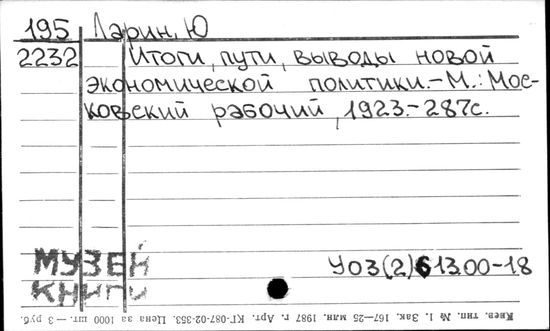 195 Ларин, Ю
2232 Итоги, пути, выводы новой
экономической политики.-М.: Мос-
ковский рабочий, 1923.-287с.
МУЗЕЙ
КНИГИ
У03(2)613.00-18
Киев. тип. № 1. Зак. 167—25 млн. 1987 г. Арт. КГ-087-02-353. Цена за 1000 шт.— 3 руб.